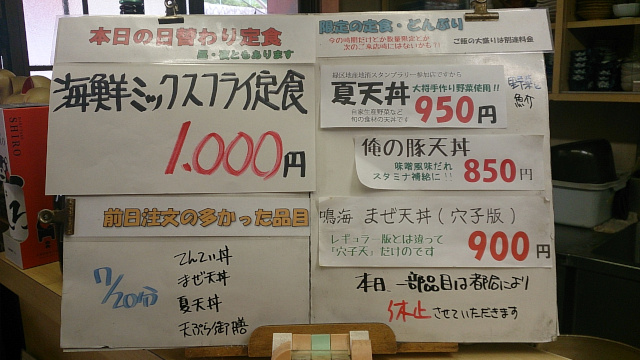 本日の日替わり定食
昼・夜ともあります
海鮮ミックスフライ定食
1.000円
前日注文の多かった品目
7/20分
てんてい丼
まぜ天丼
夏天丼
天ぷら御膳
限定の定食・どんぶり
今の時期だけとか数量限定とか
次のご来店時にはないかも!!
ご飯の大盛りは別途料金
緑区地産地消スタンプラリー参加店ですから
夏天丼 大将手作り野菜使用!!
950円
自家生産野菜など
旬の食材の天丼です
野菜と
魚介
俺の豚天丼
味噌風味だれ
スタミナ補給に!!
850円
鳴海 まぜ天丼(穴子版)
レギュラー版とは違って
「穴子天」だけのです
900円
本日、一部品目は都合により
休止させていただきます